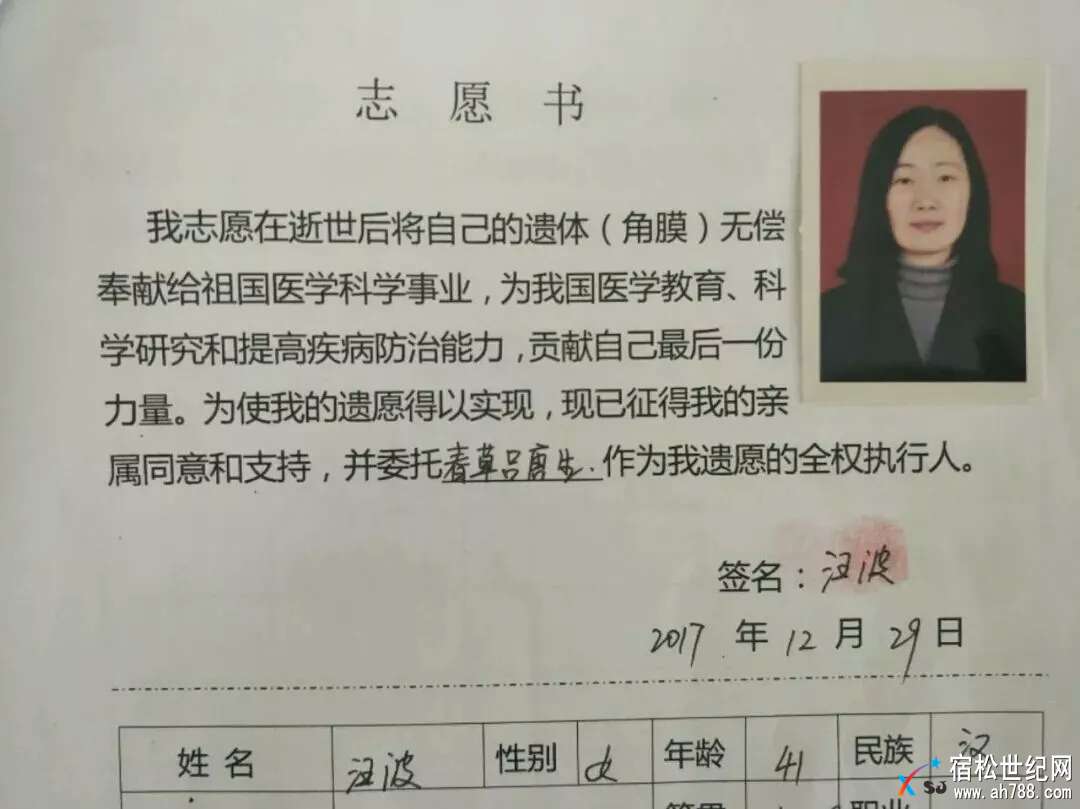 志愿书
我志愿在逝世后将自己的遗体（角膜）无偿
奉献给祖国医学科学事业，为我国医学教育、科
学研究和提高疾病防治能力，贡献自己最后一份
力量。为使我的遗愿得以实现，现已征得我的亲
属同意和支持，并委托作为我遗愿的全权执行人。
签名：汪波
2017年12月29日
姓名 汪波 性别 女 年龄 41 民族 汉
宿松世纪网
www.ah788.com